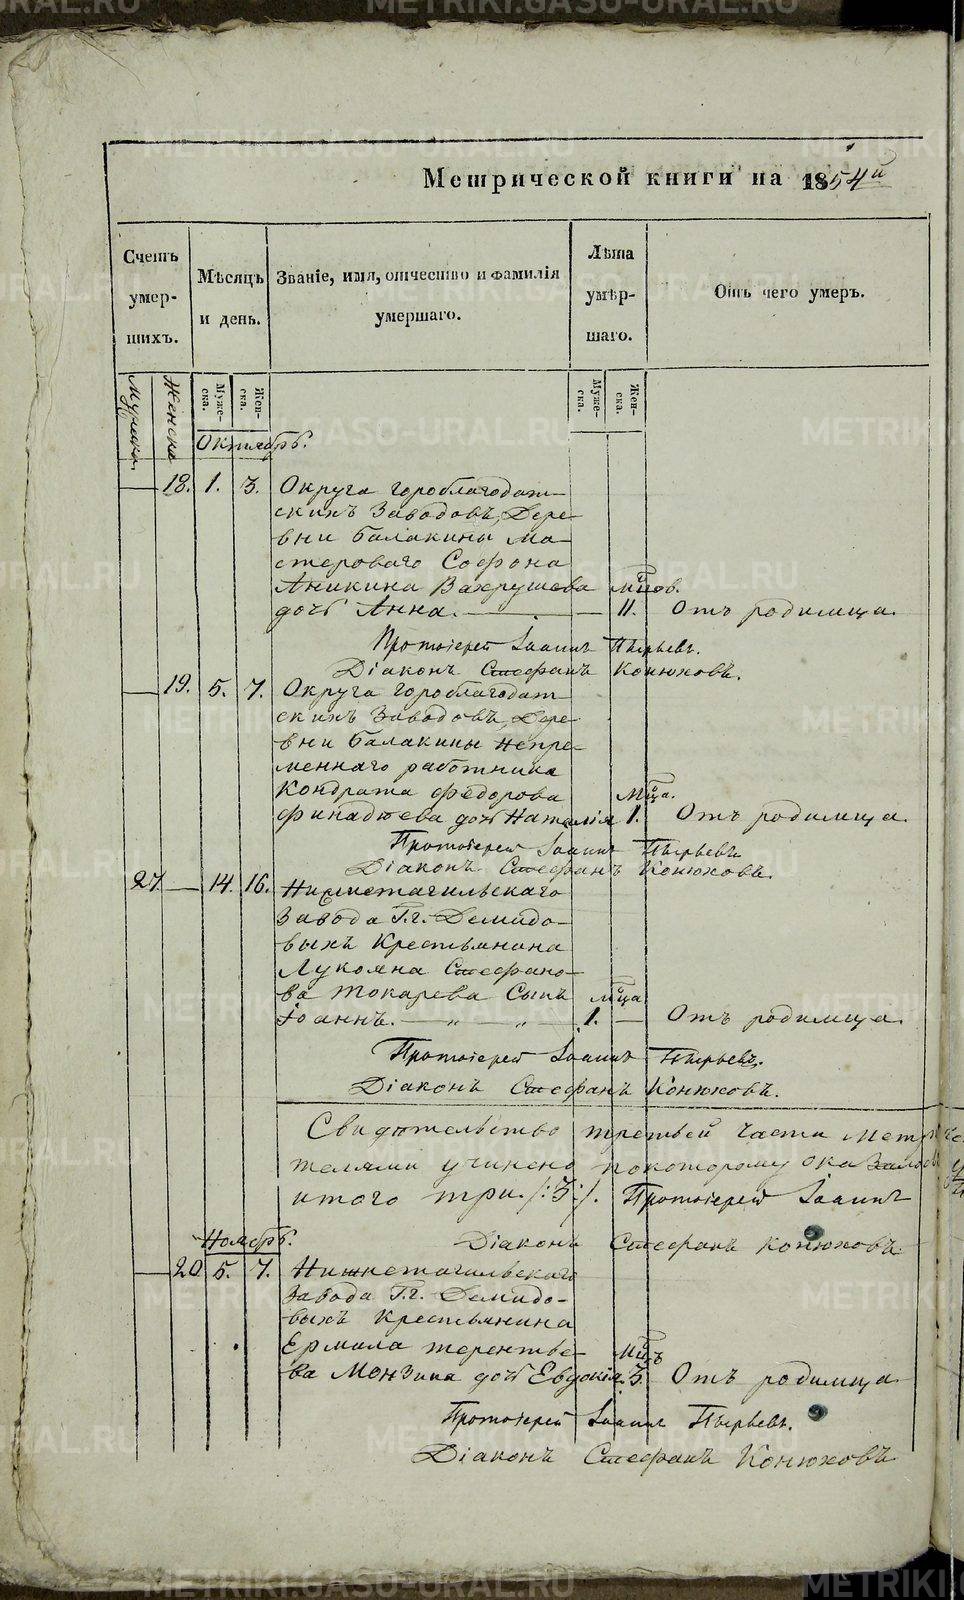 Метрической книги на 1854й
Счетъ умер-шихъ.
Мѣсяцъ и день.
Званіе, имя, отчество и фамилія умершаго.
Лѣта умѣр-шаго.
Отъ чего умеръ.
Мужска.
Женска
Муже-ска.
Жен-ска.
Муже-ска.
Жен-ска.
Октябрь.
18. 1. 3. Округа Гороблагодат-
скихъ Заводовъ, Дере-
вни Балакины Ма-
стероваго Софона
Аникина Вахрушева мцов.
дочь Анна. 11. Отъ родимца.
Протоіерей Іоаннъ Пырьевъ.
Діаконъ Стефанъ Конюховъ.
19. 5. 7. Округа Гороблагодат
скихъ Заводовъ, Дере-
вни Балакины Непре-
меннаго работника
Кондрата Федорова мца.
Финадѣева дочь Наталія 1. Отъ родимца.
Протоіерей Іоаннъ Пырьевъ
Діаконъ Стефанъ Конюховъ.
27 14. 16. Нижнетагильскаго
Завода Г.г. Демидо-
выхъ Крестьянина
Лукояна Стефано-
ва Токарева Сынъ мца
Іоаннъ. — „ — „ — 1. — Отъ родимца.
Протоіерей Іоаннъ Пырьевъ.
Діаконъ Стефанъ Конюховъ.
Свидѣтельство третьей части Метри
телями учинено по которому оказалос
итого три /:3:/. Протоіерей Іоаннъ
Діаконъ Стефанъ Конюховъ.
Ноябрь.
20 5. 7. Нижнетагильскаго
Завода Г.г. Демидо-
выхъ Крестьянина
Ермила Терентье- мцъ
ва Мензина дочь Евдокія. 3. Отъ родимца
Протоіерей Іоаннъ Пырьевъ.
Діаконъ Стефанъ Конюховъ
METRIKI.GASO-URAL.RU